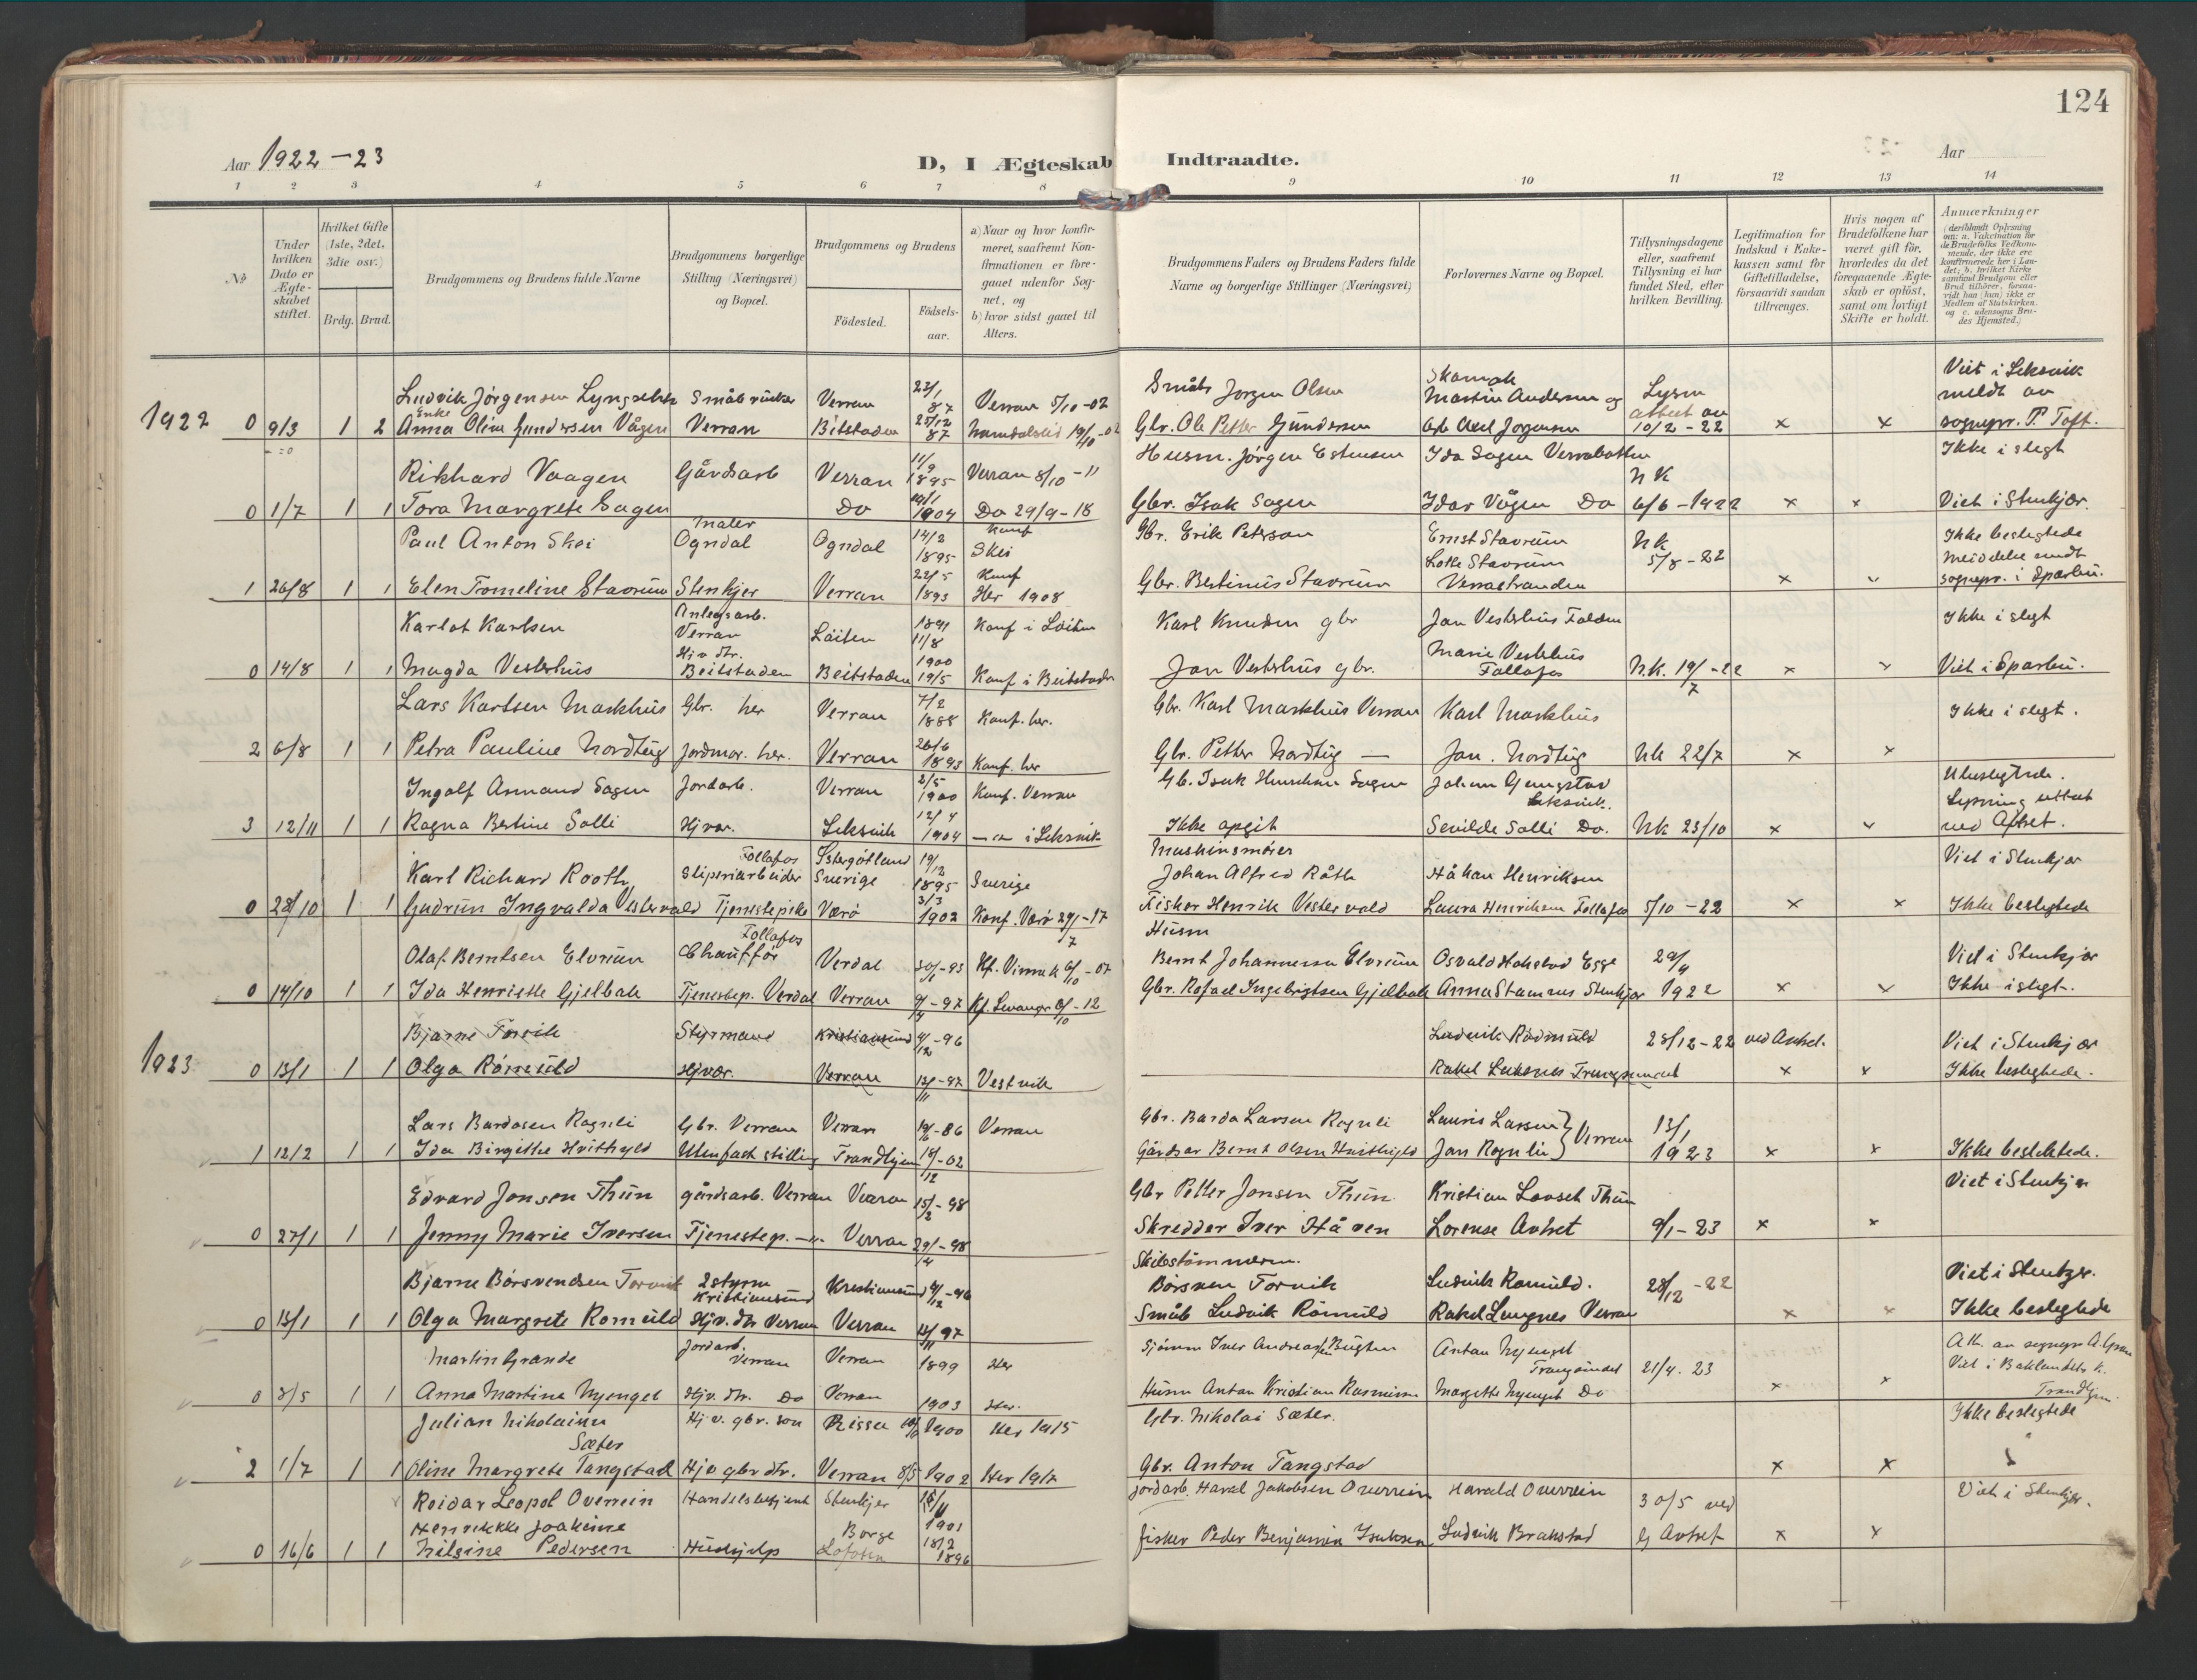 124
Aar 1922-23
D, I Ægteskab Indtraadte.
Aar
1 2 3 4 5 6 7 8 9 10 11 12 13 14
No
Under hvilken Dato er Ægteskabet stiftet.
Hvilket Gifte (1ste, 2det, 3die osv.)
Brdg. Brud.
Brudgommens og Brudens fulde Navne
Brudgommens borgerlige Stilling (Næringsvei) og Bopæl.
Brudgommens og Brudens
Fødested.
Fødselsaar.
a) Naar og hvor konfirmeret, saafremt Konfirmationen er foregaaet udenfor Sognet, og
b) hvor sidst gaaet til Alters.
Brudgommens Faders og Brudens Faders fulde Navne og borgerlige Stillinger (Næringsvei)
Forlovernes Navne og Bopæl.
Tillysningsdagene eller, saafremt Tillysning ei har fundet Sted, efter hvilken Bevilling.
Legitimation for Indskud i Enkekassen samt for Giftetilladelse, forsaavidt saadan tiltrænges.
Hvis nogen af Brudefolkene har været gift før, hvorledes da det foregaaende Ægteskab er opløst, samt om lovligt Skifte er holdt.
Anmærkninger
(deriblandt Oplysning om: a. Vakcination for de Brudefolks Vedkommende, der ikke ere konfirmerede her i Landet; b. hvilket Kirkesamfund Brudgom eller Brud tilhører, forsaavidt han (hun) ikke er Medlem af Statskirken, og c. udensogns Brudes Hjemsted.)
Ludvik Jörgensen Småbruker Verran 22/1 87 Verran 5/10-02 Småbr Jorgen Olsen Martin Andersen og Lysn Viet i Leksvik meldt av
1922 0 9/3 1 2 Enke Anna Oline Gundersen Vågen Verran Beitstaden 25/12 87 Gbr. Ole Petter Gundersen Axel Jorgensen 10/2-22 x x sognepr. P. Toft.
Rikhard Vaagen Gårdsarb Verran 11/9 1895 Verran 8/10-11 Husm. Jörgen Estensen Ida Sagen Verrabotten NK Ikke i slegt
0 1/7 1 1 Tora Margrete Sagen Do 1904 Do 29/9-18 Gbr. Isak Sagen Idar Vågen Do 6/6-1922 x x Viet i Stenkjær.
Paul Anton Skei Maler Ogndal Ogndal 14/2 1895 Konf Skei Gbr. Erik Peterson Ernst Stavrum NK 5/8-22 Ikke beslegtede
1 26/8 1 1 Elen Tromeline Stavrum Stenkjer Verran 22/5 1893 Konf Her 1908 Gbr. Bertinus Stavrum Lotte Stavrum Verrastranden x sognepr. i Sparbu.
Karlot Karlsen Anlegsarb. Verran Löiten 1891 11/8 Konf i Löiten Karl Knudsen gbr Jan Vesterhus Folden Ikke i slegt
0 14/8 1 1 Magda Vesterhus Hjv dtr. Beitstaden Beitstaden 1900 19/5 Konf i Beitstaden Jan Vesterhus gbr. Marie Vesterhus Follafos N.K. 19/7-22 x Viet i Sparbu.
Lars Karlsen Markhus Gbr. her Verran 7/2 1888 Konf. her. Gbr. Karl Markhus Verran Karl Markhus Ikke i slegt.
2 6/8 1 1 Petra Pauline Nordtug Jordmor. her. Verran 26/6 1893 Konf. her Gbr. Petter Nordtug — Jon. Nordtug NK 22/7 x x
Ingolf Armand Sagen Jordarb. Verran 2/5 1900 Konf. Verran Gb. Isak Sagen Leksvik. Ubeslegtede. Lysning
3 12/11 1 1 Ragna Bertine Solli Hjvær. Leksvik 12/4 1904 — i Leksvik Ikke opgit Solli Do. NK 23/10 x ved Aftret.
Karl Richard Rooth Follafos Sliperiarbeider Östergötland Sverige 19/12 1895 Sverige Maskinsmörer Johan Alfred Råth Håkan Henriksen Viet i Stenkjær
0 28/10 1 1 Gudrun Ingvalda Vestervold Tjenestepike Værö 3/3 1902 Konf. Værö 29/7-17 Fisker Henrik Vestervold Laura Henriksen Follafos 5/10-22 x x Ikke beslegtede
Olaf Berntsen Elvrum Follafos Chauffør Verdal 30/1-93 Husm Bernt Johannesen Elvrum Osvald Hokstad Egge 29/9 Viet i Stenkjær
0 14/10 1 1 Ida Henriette Gjelbak Tjenestep. Verdal Verran -97 Kf. Levanger 6/10-12 Gbr. Rafael Ingebrigtsen Gjelbak Anna Stamnes Stenkjær 1922 x Ikke i slegt.
Bjarne Torvik Styrmand Kristiansund 4/12-96 Ludvik Römuld 28/12-22 ved Avhol. Viet i Stenkjær
1923 0 13/1 1 1 Olga Römuld Hjvær. Verran 13/11-97 Vestvik Rakel Lengnes x x Ikke beslegtede.
Lars Bardosen Rognli Gbr. Verran Verran -86 Verran Gbr. Bardo Larsen Rognli Lauris Larsen } Verran 13/1
1 12/2 1 1 Ida Birgitte Hvithyld Uten fast stilling Trondhjem 18/12-02 Gårdsar Bernt Olsen Hvithyld Jon Rognli 1923 x x Ikke beslektede.
Edvard Jonsen Thun gårdsarb. Verran Verran 15/2-98 Gbr Petter Jonsen Thun Kristian Lovset Thun Viet i Stenkjær
0 27/1 1 1 Jenny Marie Iversen Tjenestep. —"— Verran 29/4-98 Skredder Iver Håven Lorense Avtret 9/1-23 x x
Bjarne Börsvendsen Torvik 2 styrm Kristiansund Kristiansund 4/12-96 Skibstömmerm. Börsven Torvik Ludvik Romuld. 28/12-22 Viet i Stenkjer.
0 13/1 1 1 Olga Margrete Romuld Hjv. dtr Verran Verran 13/11 97 Småb Ludvik Römuld Rakel Lengnes Verran x x Ikke beslegtede
Martin Grande Jordarb. Verran Verran 1899 Her Sjömm Iver Andreassen Bugten Anton Nyenget Trangsundet 21/4. 23 Viet i Baklandets K. Trondhjem
0 3/5 1 1 Anna Martina Nyenget Hjv. dtr. Do Verran 1903 Her. Husm Anton Kristian Rasmussen Margrethe Nyenget Do x x
Julian Nikolaisen Sæter Hjv. gbr. søn Rissa 1900 Her 1915 Gbr. Nikolai Sæter. Ikke beslegtede
2 1/7 1 1 Oline Margrete Tangstad Hjv gbr dtr. Verran 8/5 1902 Her 1917 Gbr. Anton Tangstad x x
Reidar Leopol Overrein Handelsbetjent Stenkjer 1901 Jordarb. Haral Jakobsen Overrein Harald Overrein 30/5 ved Viet i Stenkjer.
0 16/6 1 1 Henrikke Joakime Nilsine Pedersen Hushjelp Borge Lofoten 18/2 1896 fisker Peder Benjamin Isaksen Ludvik Brakstad Avtret x x